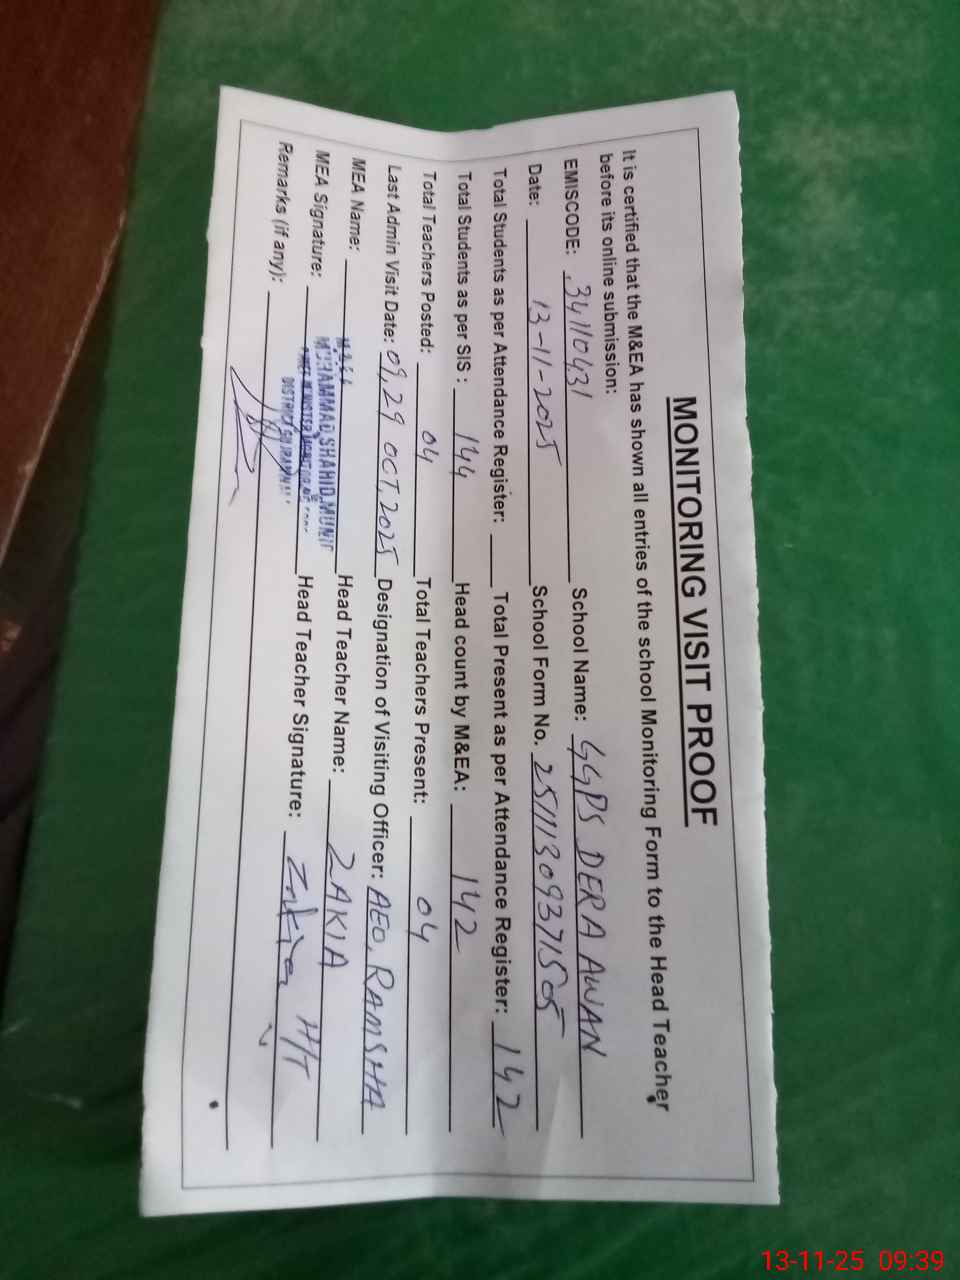 MONITORING VISIT PROOF
It is certified that the M&EA has shown all entries of the school Monitoring Form to the Head Teacher
before its online submission:
EMISCODE: 34110431 School Name: GGPS DERA AWAN
Date: 13-11-2025 School Form No. 25111309371505
Total Students as per Attendance Register: Total Present as per Attendance Register: 142
Total Students as per SIS: 144 Head count by M&EA: 142
Total Teachers Posted: 04 Total Teachers Present: 04
Last Admin Visit Date: 09,29 OCT,2025 Designation of Visiting Officer: AEO, RAMSHA
MEA Name: Head Teacher Name: ZAKIA
MUHAMMAD SHAHID MUNIR
MEA Signature: Head Teacher Signature: Zakia H/T
DISTRICT GUJRANWALA
Remarks (if any):
13-11-25 09:39